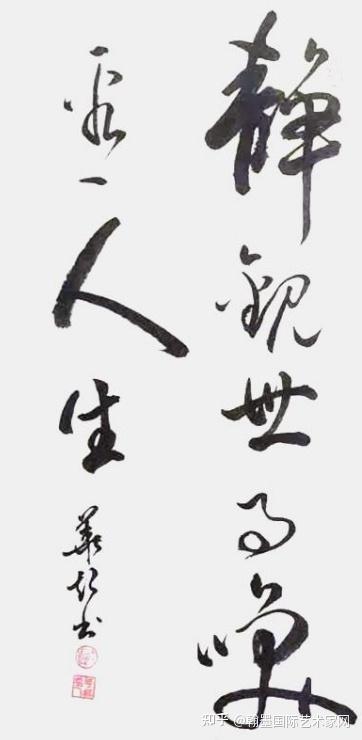 静觀世事笑
看人生
華 书
知乎 @翰墨国际艺术家网